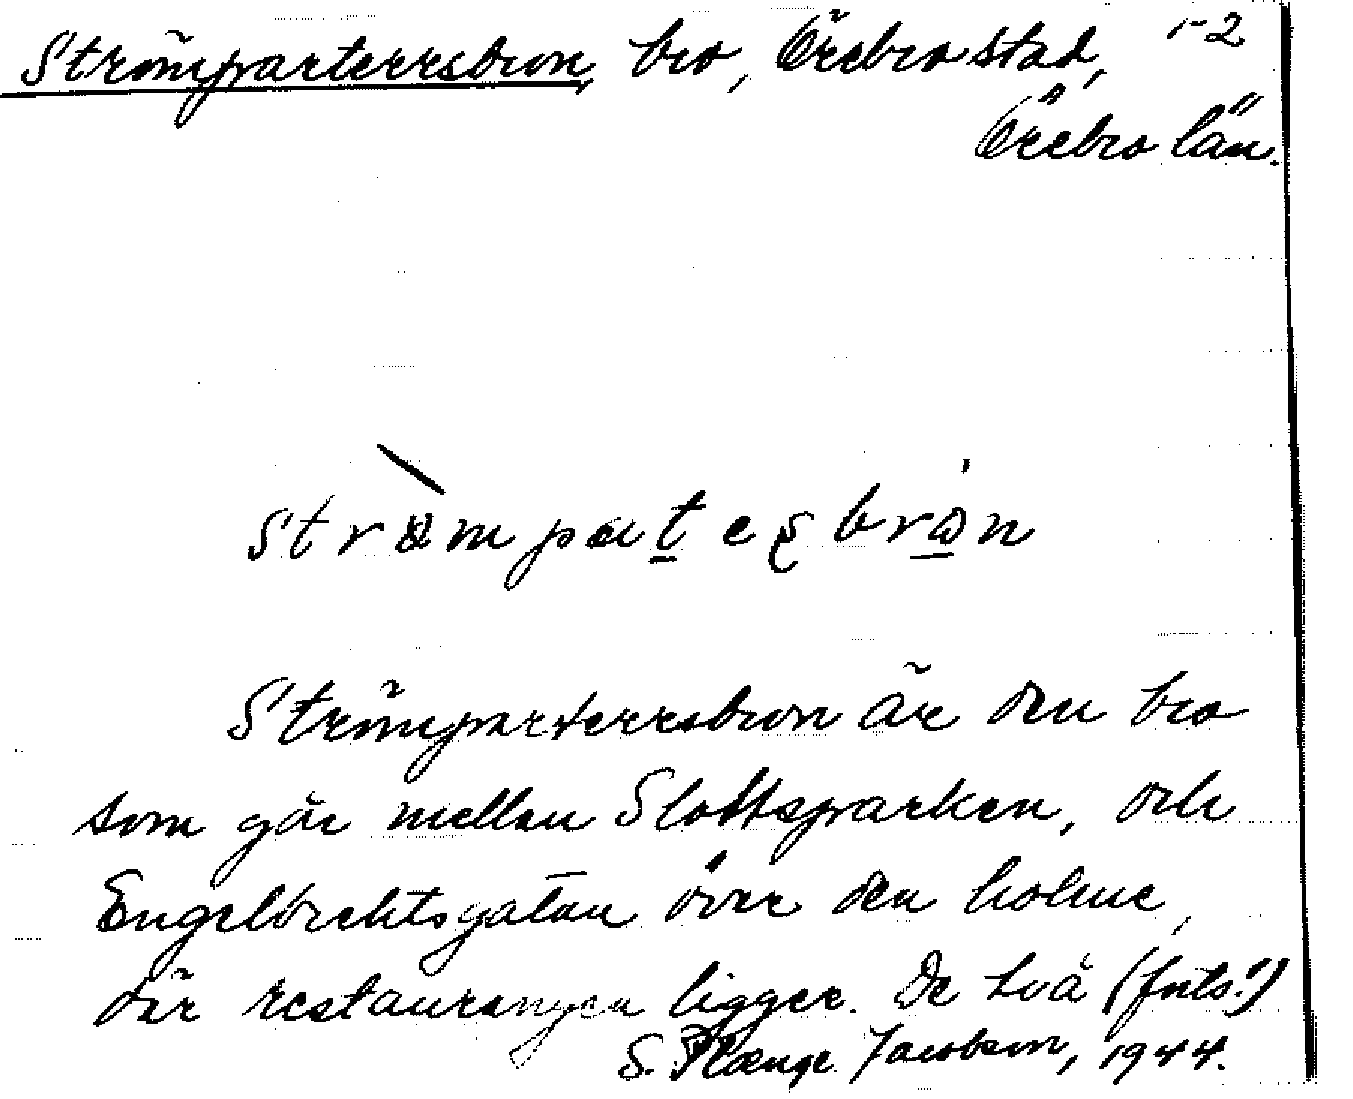 Strömparterrsbron, bro, Örebro stad, 1-2
Örebro län.
Strömparterrsbron är den bro
som går mellan Slottsparken, och
Engelbrektsgatan över den holme,
där restaurangen ligger. De två (forts.!)
S. Plænge Jacobson, 1944.